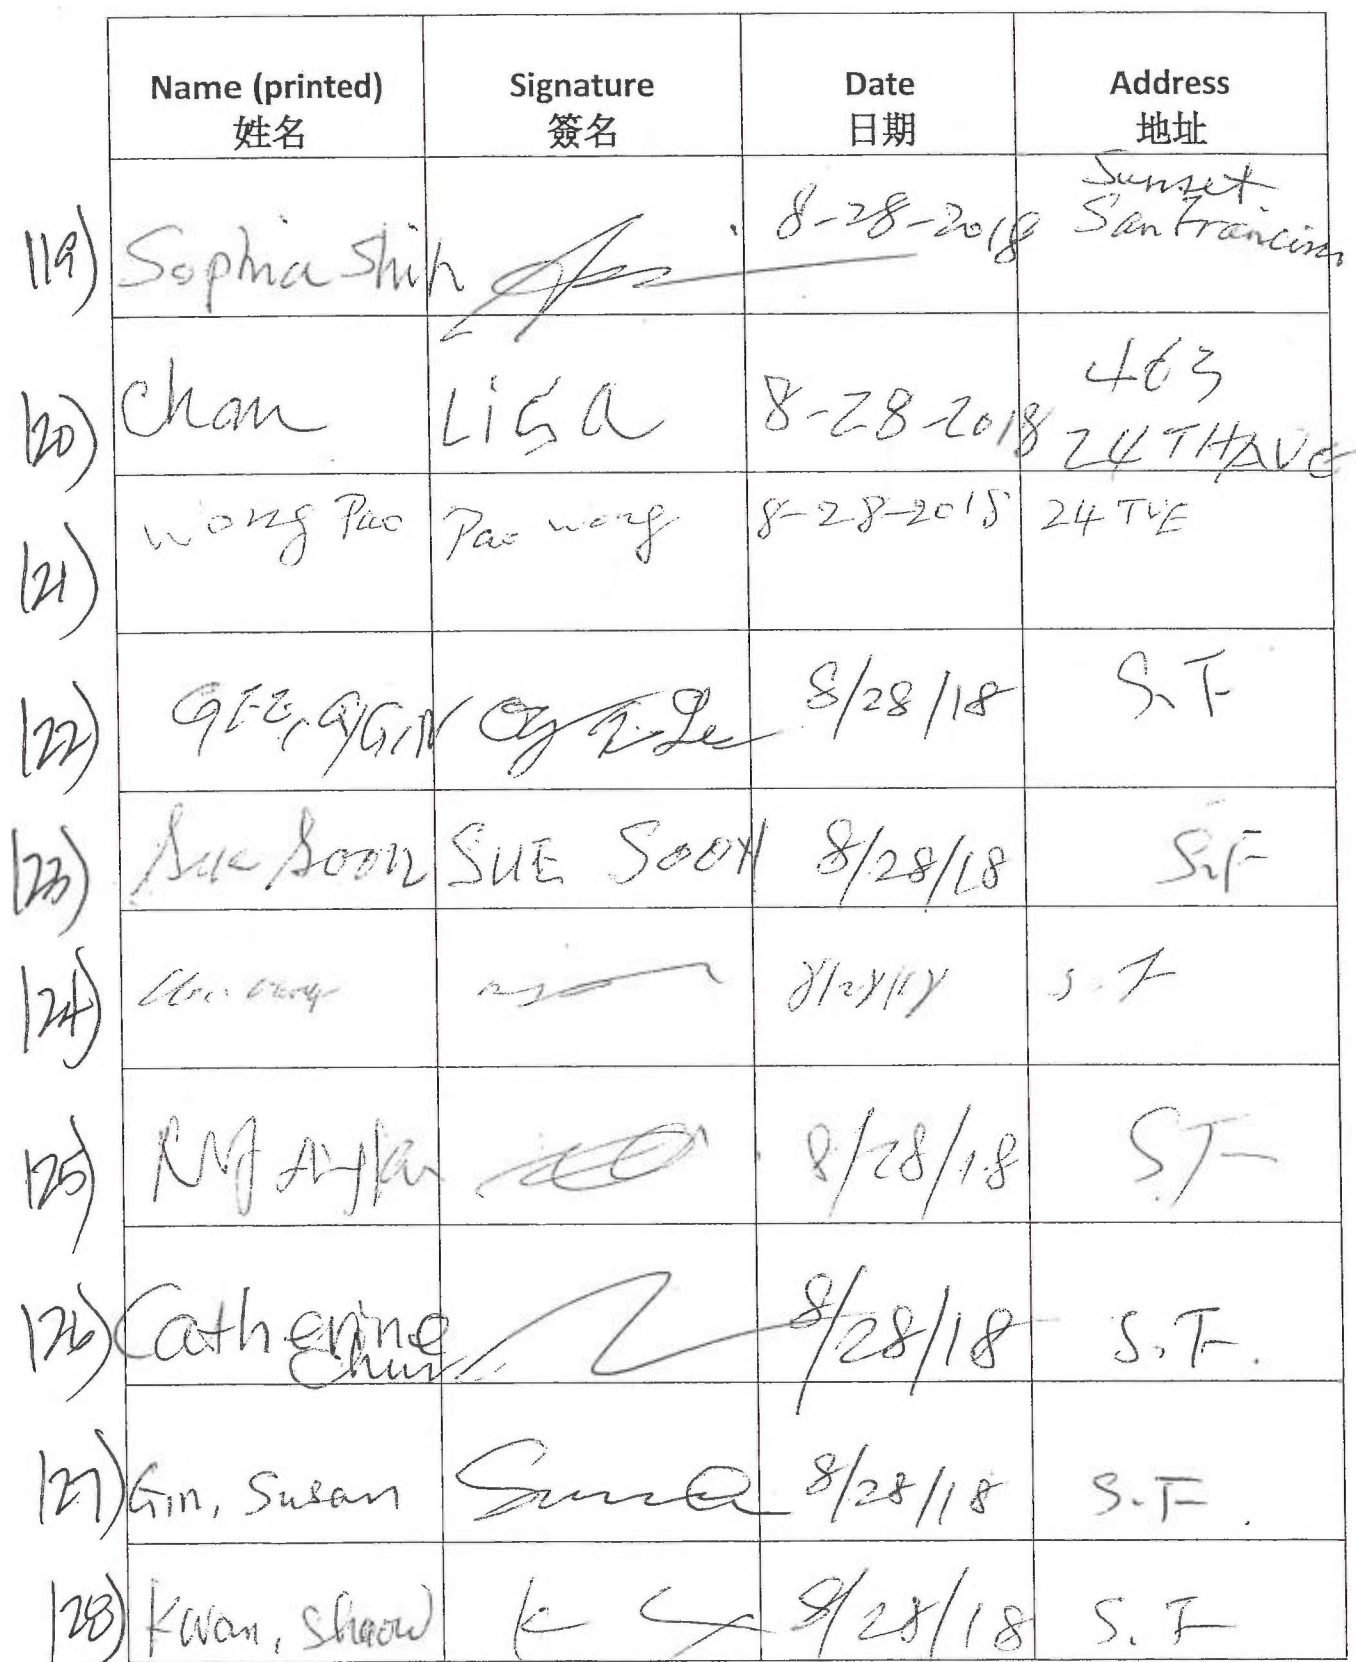 Name (printed) Signature Date Address
姓名 簽名 日期 地址
119) Sophia Shih 8-28-2018 Sunset
San Francisco
120) Chan LiSa 8-28-2018 463
24THAVE
121) Wong Pao Pao Wong 8-28-2018 24 TVE
122) GEE, 8/28/18 S.F
123) Sue Soon SUE SOON 8/28/18 S.F
124) 8/28/18 S.F
125) 8/28/18 S.F
126) Catherine 8/28/18 S.F.
Chui
127) Gin, Susan 8/28/18 S.F.
128) Kwan, 8/28/18 S.F